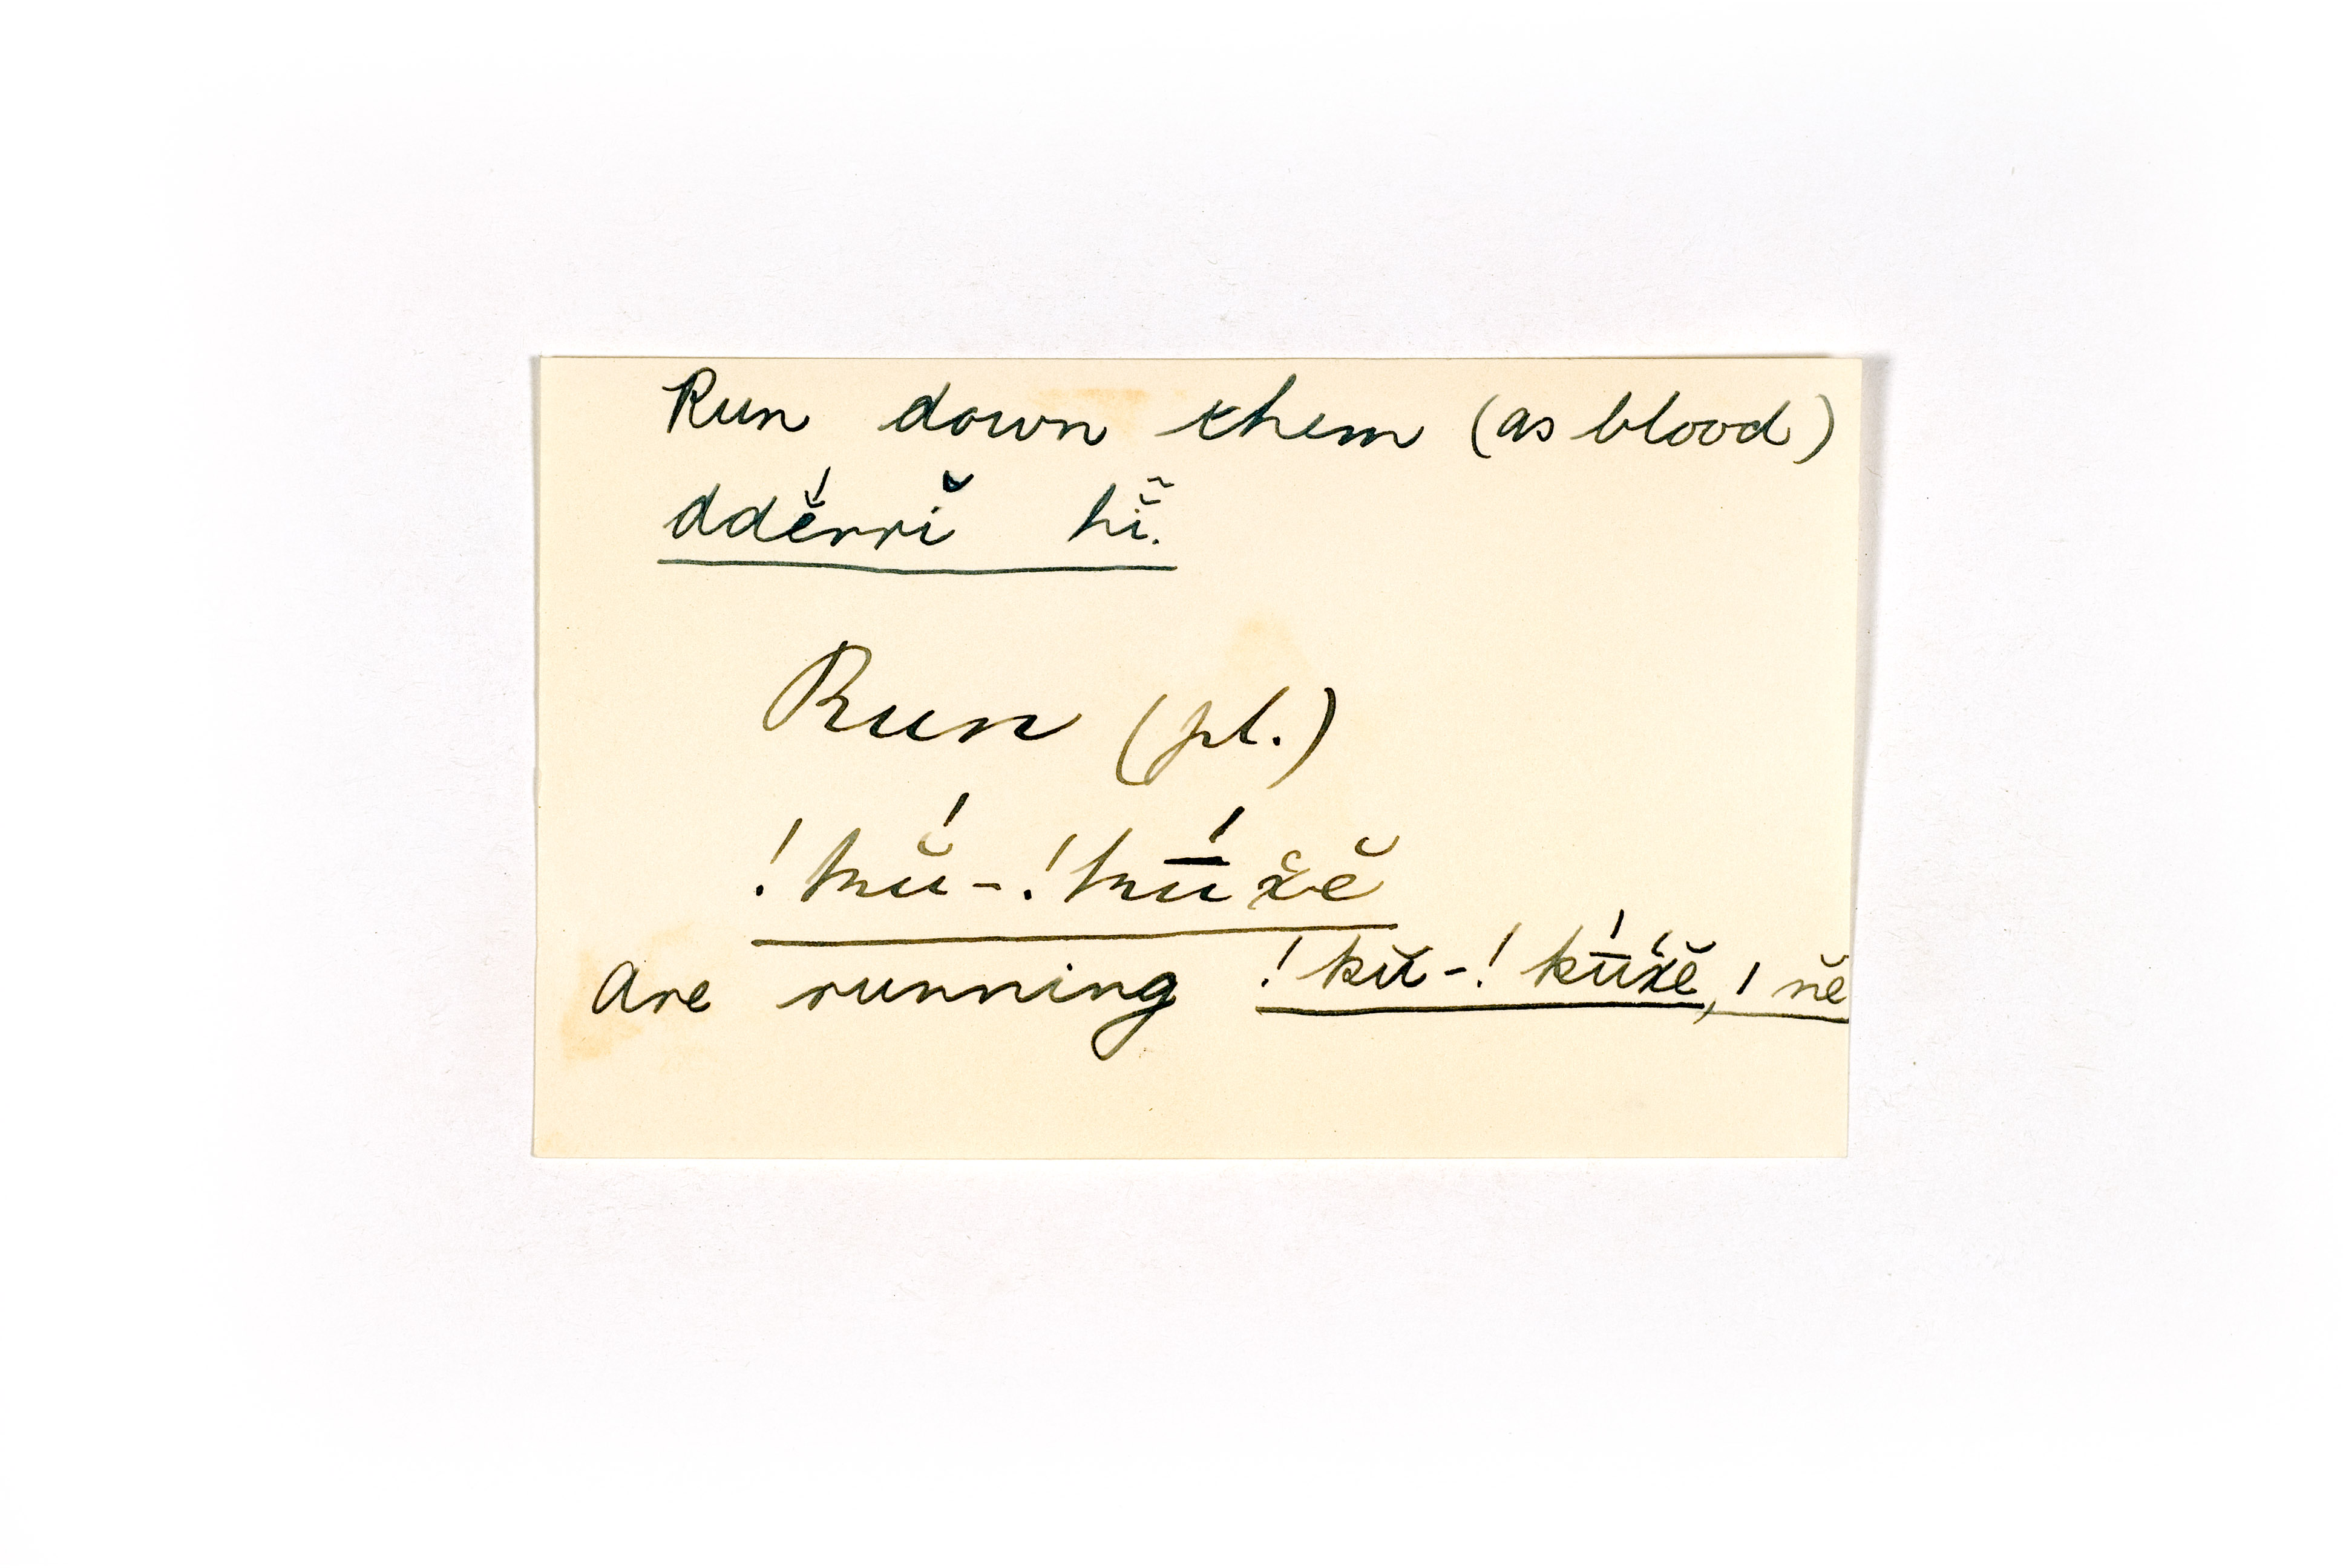 Run down them (as blood)
ddĕ́rrĭ hĭ̃.
Run (pl.)
!kŭ́-!kū́x̆ĕ
Are running !kŭ-!kū́x́ĕ, I nĕ